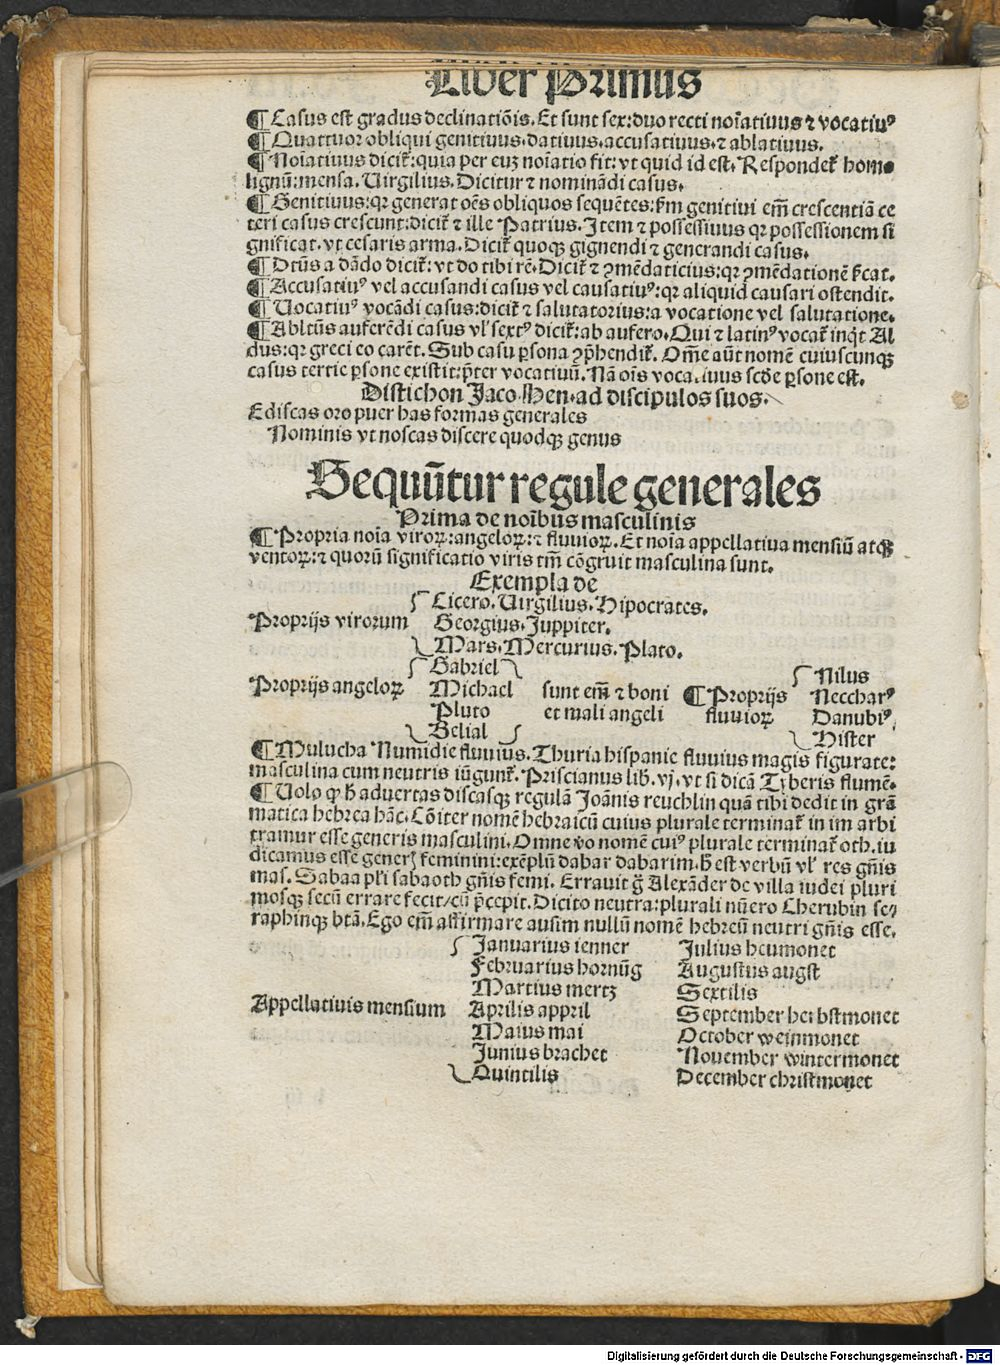 Liber Primus
¶ Casus est gradus declinatiõis. Et sunt sex: duo recti noĩatiuus ⁊ vocatiuꝰ
¶ Quattuor obliqui genitiuus. datiuus. accusatiuus. ⁊ ablatiuus.
¶ Noĩatiuus dicit᷑: quia per euʒ noĩatio fit: vt quid id est. Respondet᷑ homo
lignũ: mensa. Uirgilius. Dicitur ⁊ nominãdi casus.
¶ Genitiuus: qꝛ generat oẽs obliquos sequẽtes: ẜm genitiui em̃ crescentiã ce
teri casus crescunt: dicit᷑ ⁊ ille Patrius. Item ⁊ possessiuus qꝛ possessionem si
gnificat. vt cesaris arma. Dicit᷑ quoqꝫ gignendi ⁊ generandi casus.
¶ Dtũs a dãdo dicit᷑: vt do tibi rẽ. Dicit᷑ ⁊ ꝯmẽdaticius: qꝛ ꝯmẽdationẽ ẜcat.
¶ Accusatiuꝰ vel accusandi casus vel causatiuꝰ: qꝛ aliquid causari ostendit.
¶ Uocatiuꝰ vocãdi casus: dicit᷑ ⁊ salutatorius: a vocatione vel salutatione.
¶ Abltũs auferẽdi casus vl̓ sextꝰ dicit᷑: ab aufero. Qui ⁊ latinꝰ vocat᷑ inq̃t Al
dus: qꝛ greci eo carẽt. Sub casu ꝑsona ꝯp̃hendit᷑. Om̃e aũt nomẽ cuiuscunqꝫ
casus tertie ꝑsone existit: p̃ter vocatiuũ. Nã oĩs vocatiuus scd̃e ꝑsone est.
Distichon Jaco. Hen. ad discipulos suos.
Ediscas oro puer has formas generales
Nominis vt noscas discere quodqꝫ genus
Sequũtur regule generales
Prima de noĩbus masculinis
¶ Propria noĩa viroꝝ: angeloꝝ: ⁊ fluuioꝝ. Et noĩa appellatiua mensiũ atqꝫ
ventoꝝ: ⁊ quorũ significatio viris tm̃ cõgruit masculina sunt.
Exempla de
Proprijs virorum
Cicero. Uirgilius. Hipocrates.
Georgius. Juppiter.
Mars. Mercurius. Plato.
Proprijs angeloꝝ
Gabriel
Michael
Pluto
Belial
sunt em̃ ⁊ boni
et mali angeli
¶ Proprijs
fluuioꝝ
Nilus
Neccharꝰ
Danubiꝰ
Hister
¶ Mulucha Numidie fluuius. Thuria hispanie fluuius magis figurate:
masculina cum neutris iũgunt᷑. Priscianus lib. vj. vt si dicã Tyberis flumẽ.
¶ Uolo ꝙ h̃ aduertas discasqꝫ regulã Joãnis reuchlin quã tibi dedit in grã
matica hebrea hãc. Cõiter nomẽ hebraicũ cuius plurale terminat᷑ in im arbi
tramur esse generis masculini. Omne v̓o nomẽ cuiꝰ plurale terminat᷑ oth. iu
dicamus esse generꝭ feminini: exẽplũ dabar dabarim. h̃ est verbũ vl̓ res gñis
mas. Sabaa pl̓i sabaoth gñis femi. Errauit g̃ Alexãder de villa iudei pluri
mosqꝫ secũ errare fecit/cũ p̃cepit. Dicito neutra: plurali nũero Cherubin se/
raphinqꝫ btã. Ego em̃ affirmare ausim nullũ nomẽ hebreũ neutri gñis esse.
Appellatiuis mensium
Januarius ienner
Februarius hornũg
Martius mertʒ
Aprilis appril
Maius mai
Junius brachet
Quintilis
Julius heumonet
Augustus augst
Sextilis
September herbstmonet
October weinmonet
Nouember wintermonet
December christmonet
Digitalisierung gefördert durch die Deutsche Forschungsgemeinschaft - DFG